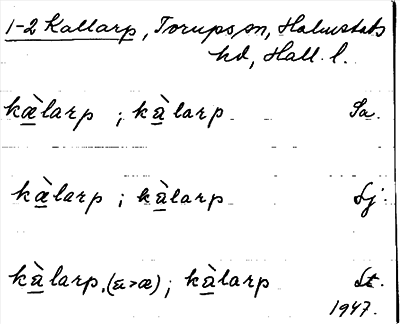 1-2 Kallarp, Torups sn, Halmstads
hd, Hall. l.
kæ̲̀larp ; kà̲larp Sa.
kæ̲̀larp ; kà̲larp Lj.
kà̲larp, (a>æ) ; kà̲larp St.
1947.